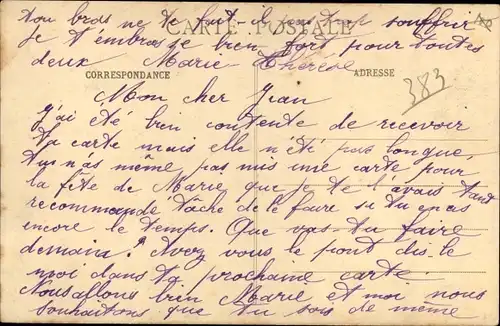 ton bras ne te fait-il pas trop souffrir
Je t'embrasse bien fort pour toutes
deux Marie Thérèse
CARTE POSTALE
CORRESPONDANCE
ADRESSE
383
Mon cher Jean
j'ai été bien contente de recevoir
ta carte mais elle n'été pas longue,
tu n'as même pas mis une carte pour
la fête de Marie que je te l'avais tant
recommandé tâche de le faire si tu en as
encore le temps. Que vas-tu faire
demain? Avez vous le pont dis-le
moi dans ta prochaine carte.
Nous allons bien Marie et moi nous
souhaitons que tu sois de même